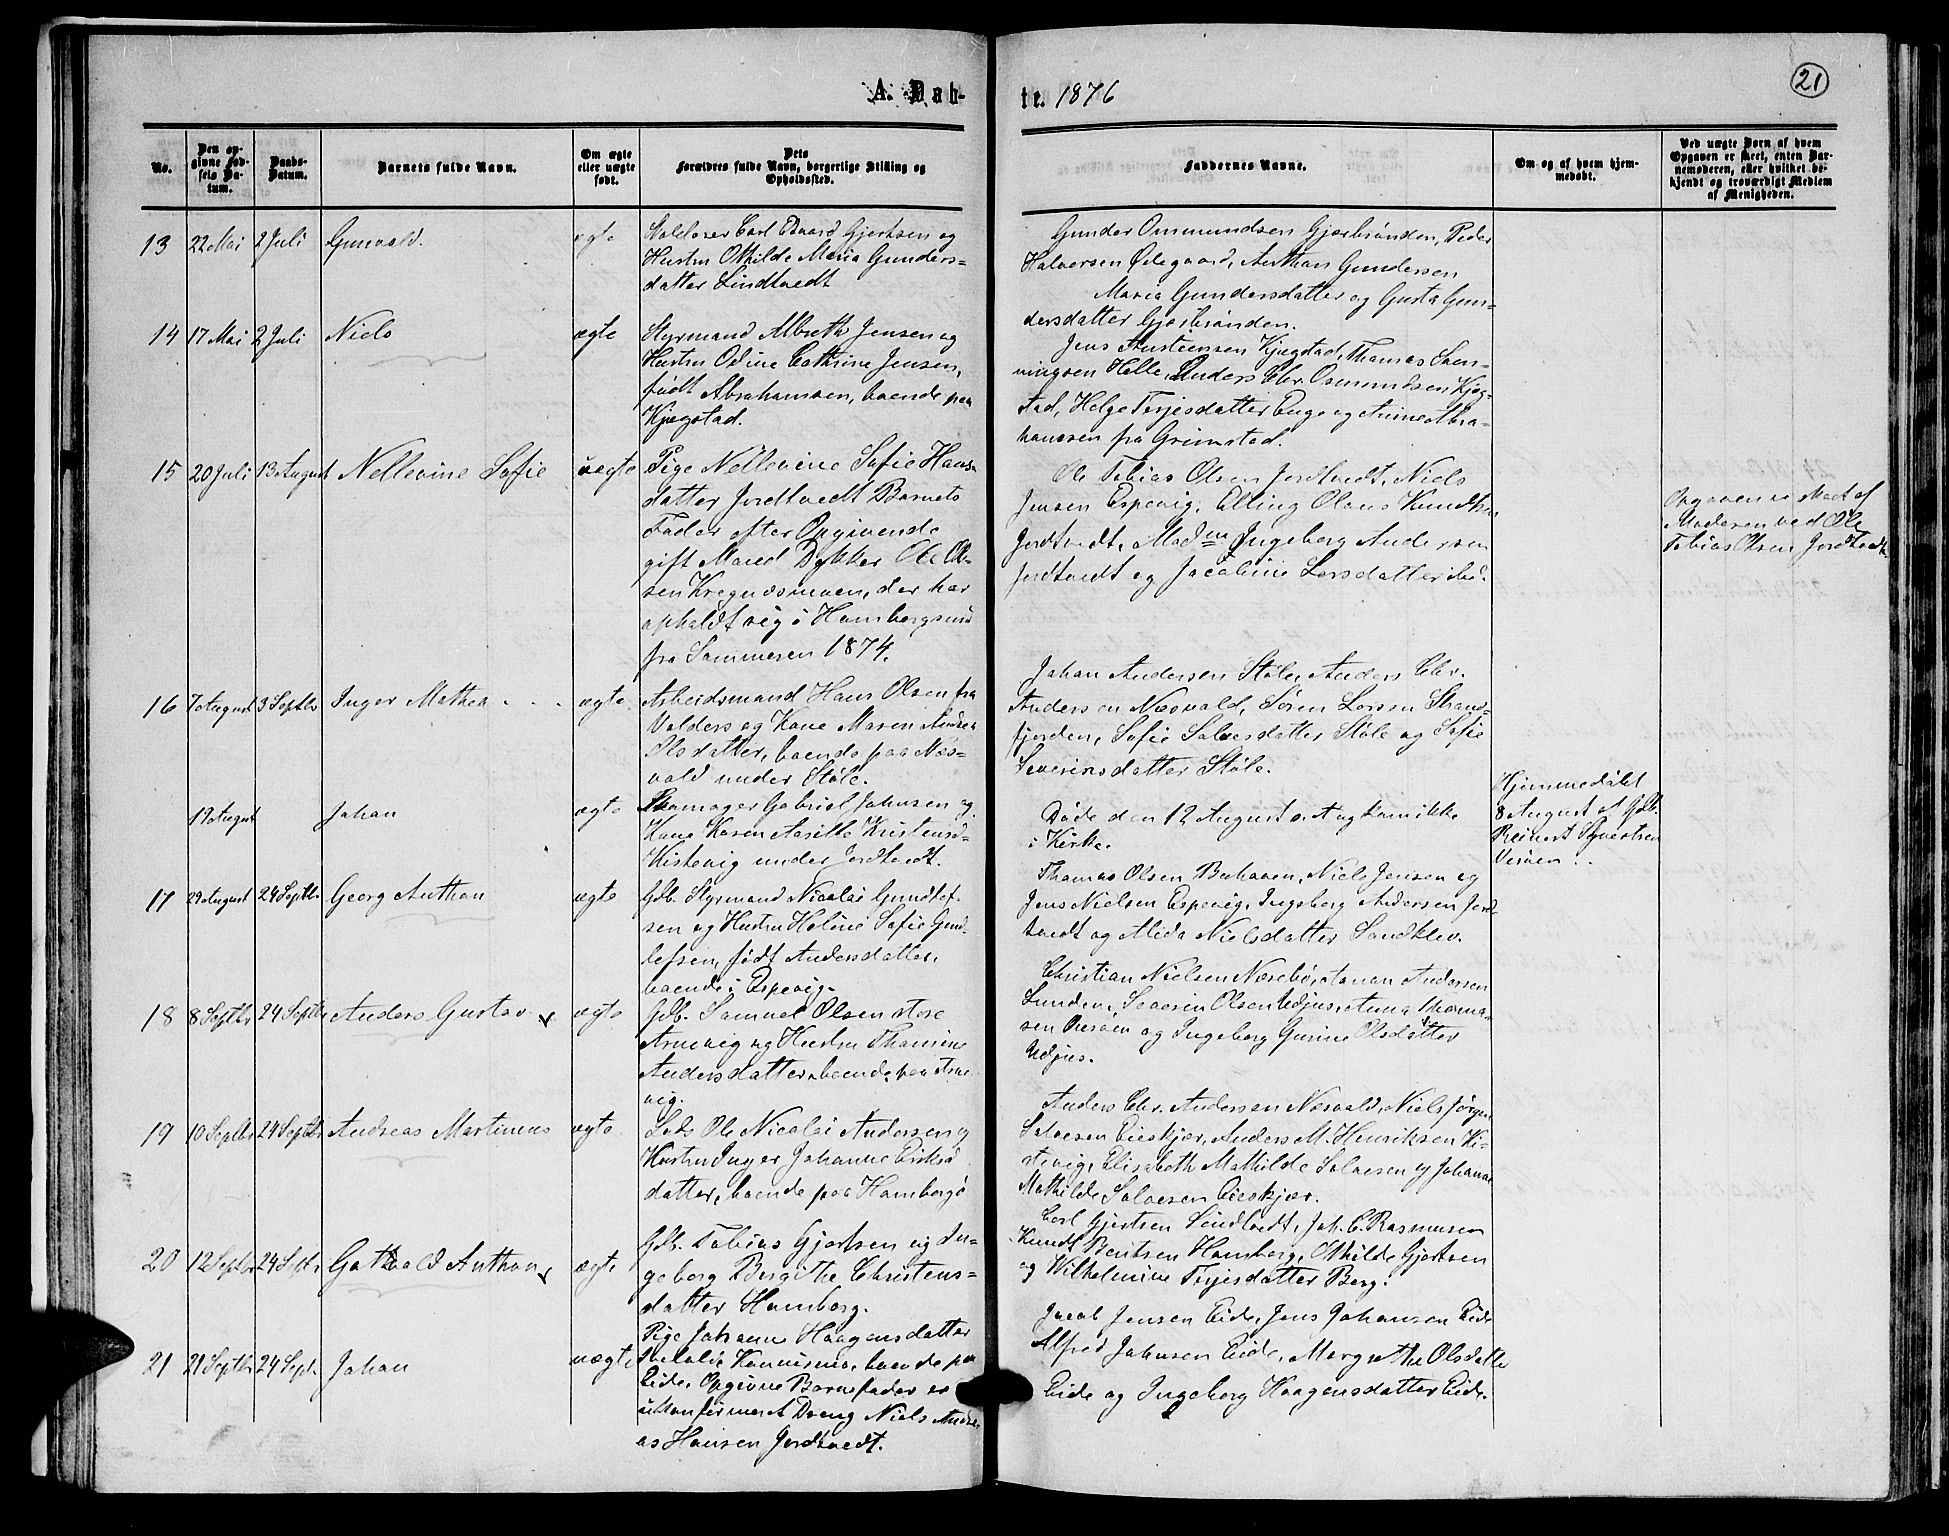 A. Dåb-
te. 1876
21
No.
Den op-
givne Fød-
sels Da-
tum.
Daabs-
Datum.
Barnets fulde Navn.
Om ægte
eller uægte
født.
Dets
Forældres fulde Navn, borgerlige Stilling og
Opholdssted.
Faddernes Navne.
Om og af hvem hjem-
medøbt.
Ved uægte Børn af hvem
Opgaven er skeet, enten Bar-
nemoderen, eller hvilket be-
kjendt og troværdigt Medlem
af Menigheden.
13 22 Mai 2 Juli Gunvald. ægte
Carl Edvard Gjertsen og
Hustru Othilde Maria Gunders-
datter Lindtvedt
Gunder Ommundsen Gjærbrønden, Peder
Halvorsen Ødegaard, Anthon Gundersen
Maria Gundersdatter og Gusta Gun-
dersdatter Gjærbrønden.
14 17 Mai 2 Juli Niels ægte
Styrmand Albreth Jensen og
Hustru Odine Cathrine Jensen,
født Abrahamsen, boende paa
Kjegstad.
Jens Austiensen Kjegstad, Thomas Sven-
ningsen Helle, Anders Chr. Osmundsen Kjeg-
stad, Helge Terjesdatter Enge og Anine Abra-
hamsen fra Grimstad.
15 20 Juli 13 August Nellevine Sofie uægte
Pige Nellevine Sofie Hans-
datter Jordtvedt Barnets
Fader efter Opgivende
gift Mand Dykker Ole Ol-
sen Krøgnæsmoen, der har
opholdt sig i Homborgsund
fra Sommeren 1874.
Ole Tobias Olsen Jordtvedt, Niels
Jensen Espevig, Elling Olaus Knudsen
Jordtvedt, Mad<sup>m</sup> Ingeborg Andersen
Jordtvedt og Jacobine Larsdatter ibd.
Opgaven er skeet af
Moderen ved Ole
Tobias Olsen Jordtvedt
16 7 August 3 Septbr Inger Mathea ægte
Arbeidsmand Hans Olsen fra
Valders og Kone Maren Andrea
Olsdatter, boende paa Næs-
vald under Støle.
Johan Andersen Støle, Anders Chr.
Andersen Næsvald, Søren Larsen Strand-
fjorden, Sofie Salvesdatter Støle og Sofie
Severinsdatter Støle.
19 August Johan ægte
Skomager Gabriel Johnsen og
Kone Karen Aasille Kristensd-
Kistevig under Jordtvedt.
Døde den 12 August o. A og kom ikke
i Kirke.
Hjemmedøbt
8 August af Gdb.
Reinert Syvertsen
Vesøen.
17 29 August 24 Septbr. Georg Anthon ægte
Gdb. Styrmand Nicolai Gundlef-
sen og Hustru Helene Sofie Gund-
lefsen, født Andersdatter,
boende i Espevig.
Thomas Olsen Buhaven, Niels Jensen og
Jens Nielsen Espevig, Ingeborg Andersen Jord-
tvedt og Alida Nielsdatter Sandklev.
18 8 Septbr 24 Septbr Anders Gustav ægte
Gdb. Samuel Olsen store
Arnevig og Hustru Thomine
Andersdatter, boende paa Arne-
vig.
Christian Nielsen Næsebø, Aanon Andersen
Lunden, Severin Olsen Udjus, Anna Thoma-
sen Omsøen og Ingeborg Gurine Olsdatter
Udjus.
19 10 Septbr 24 Septbr Andreas Martinius ægte
Lods Ole Nicolai Andersen og
Hustru Inger Johanne Eriks-
datter, boende paa Homborgø
Anders Chr. Andersen Næsvald, Niels Jørgen
Salvesen Eieskjær, Anders M. Henriksen Ki-
stevig, Elisabeth Mathilde Salvesen og Johanne
Mathilde Salvesen Eieskjær.
20 12 Septbr 24 Sept. Gothvald Anthon ægte
Gdb. Tobias Gjertsen og In-
geborg Birgithe Christens-
datter Homborg.
Carl Gjertsen Lindtvedt, Joh. C. Rasmusen
Knud Bentsen Homborg, Othilde Gjertsen
og Wilhelmine Terjesdatter Berg.
21 21 Septbr 24 Sept. Johan uægte
Pige Johanne Haagensdatter
boende paa
Eide. Opgivne Barnefader er
ukonfirmeret Dreng Niels Andre-
as Hansen Jordtvedt.
Jacob Jensen Eide, Jens Johansen Eide
Alfred Johnsen Eide, Margrethe Olsdatter
Eide og Ingeborg Haagensdatter Eide.